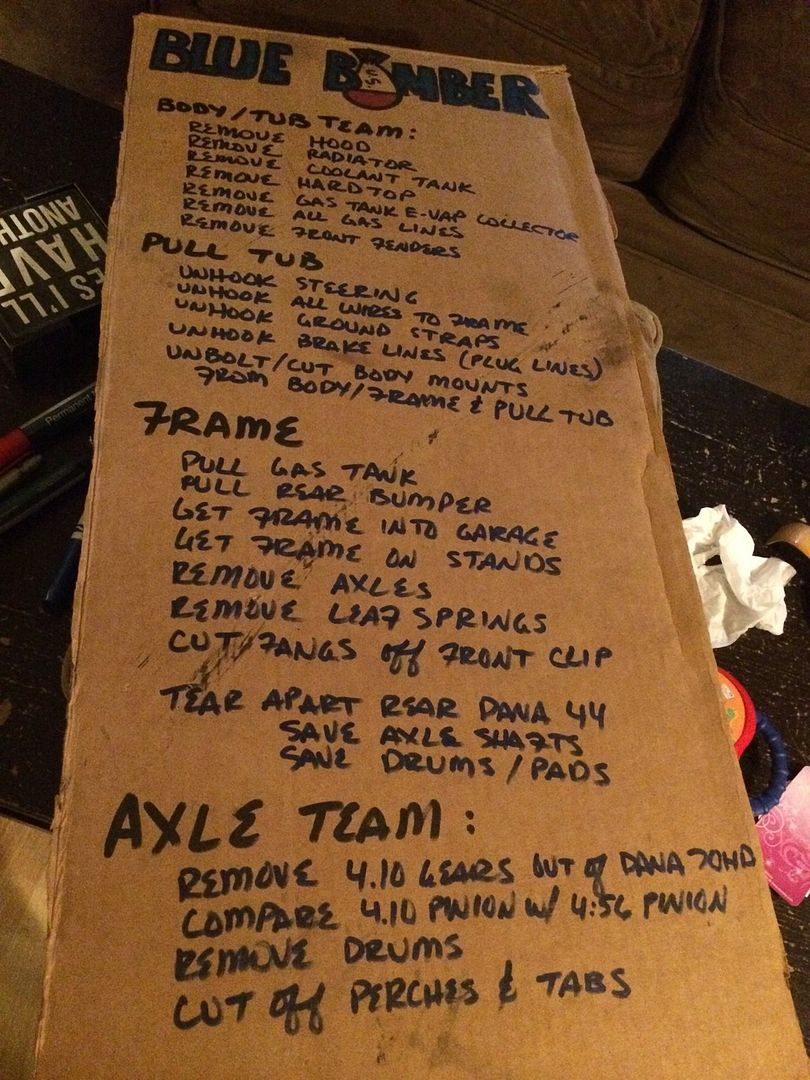 BLUE BOMBER
U.S.
BODY/TUB TEAM:
REMOVE HOOD
REMOVE RADIATOR
REMOVE COOLANT TANK
REMOVE HARDTOP
REMOVE GAS TANK E-VAP COLLECTOR
REMOVE ALL GAS LINES
REMOVE FRONT FENDERS
PULL TUB
UNHOOK STEERING
UNHOOK ALL WIRES TO FRAME
UNHOOK GROUND STRAPS
UNHOOK BRAKE LINES (PLUG LINES)
UNBOLT/CUT BODY MOUNTS
FROM BODY/FRAME & PULL TUB
FRAME
PULL GAS TANK
PULL REAR BUMPER
GET FRAME INTO GARAGE
GET FRAME ON STANDS
REMOVE AXLES
REMOVE LEAF SPRINGS
CUT FANGS off FRONT CLIP
TEAR APART REAR DANA 44
SAVE AXLE SHAFTS
SAVE DRUMS/PADS
AXLE TEAM:
REMOVE 4.10 GEARS OUT of DANA 70HD
COMPARE 4.10 PINION W/ 4:56 PINION
REMOVE DRUMS
CUT off PERCHES & TABS
ES I'LL
HAVE
ANOTH
Permanent